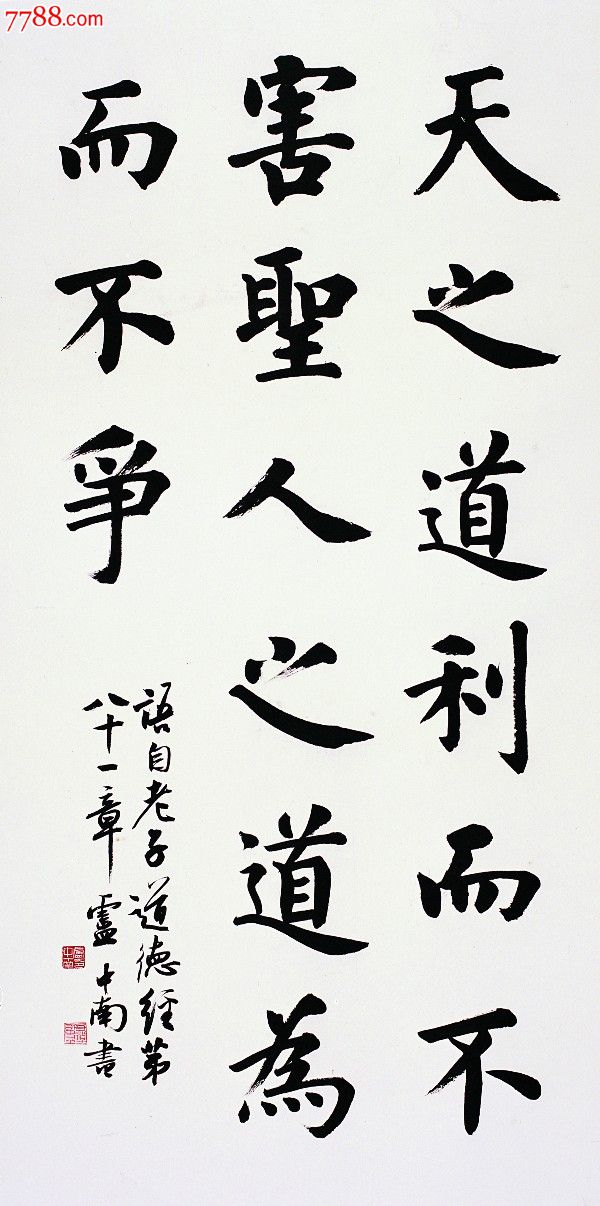 7788.com
天之道利而不
害聖人之道為
而不爭
語自老子道德經第
八十一章 盧中南書